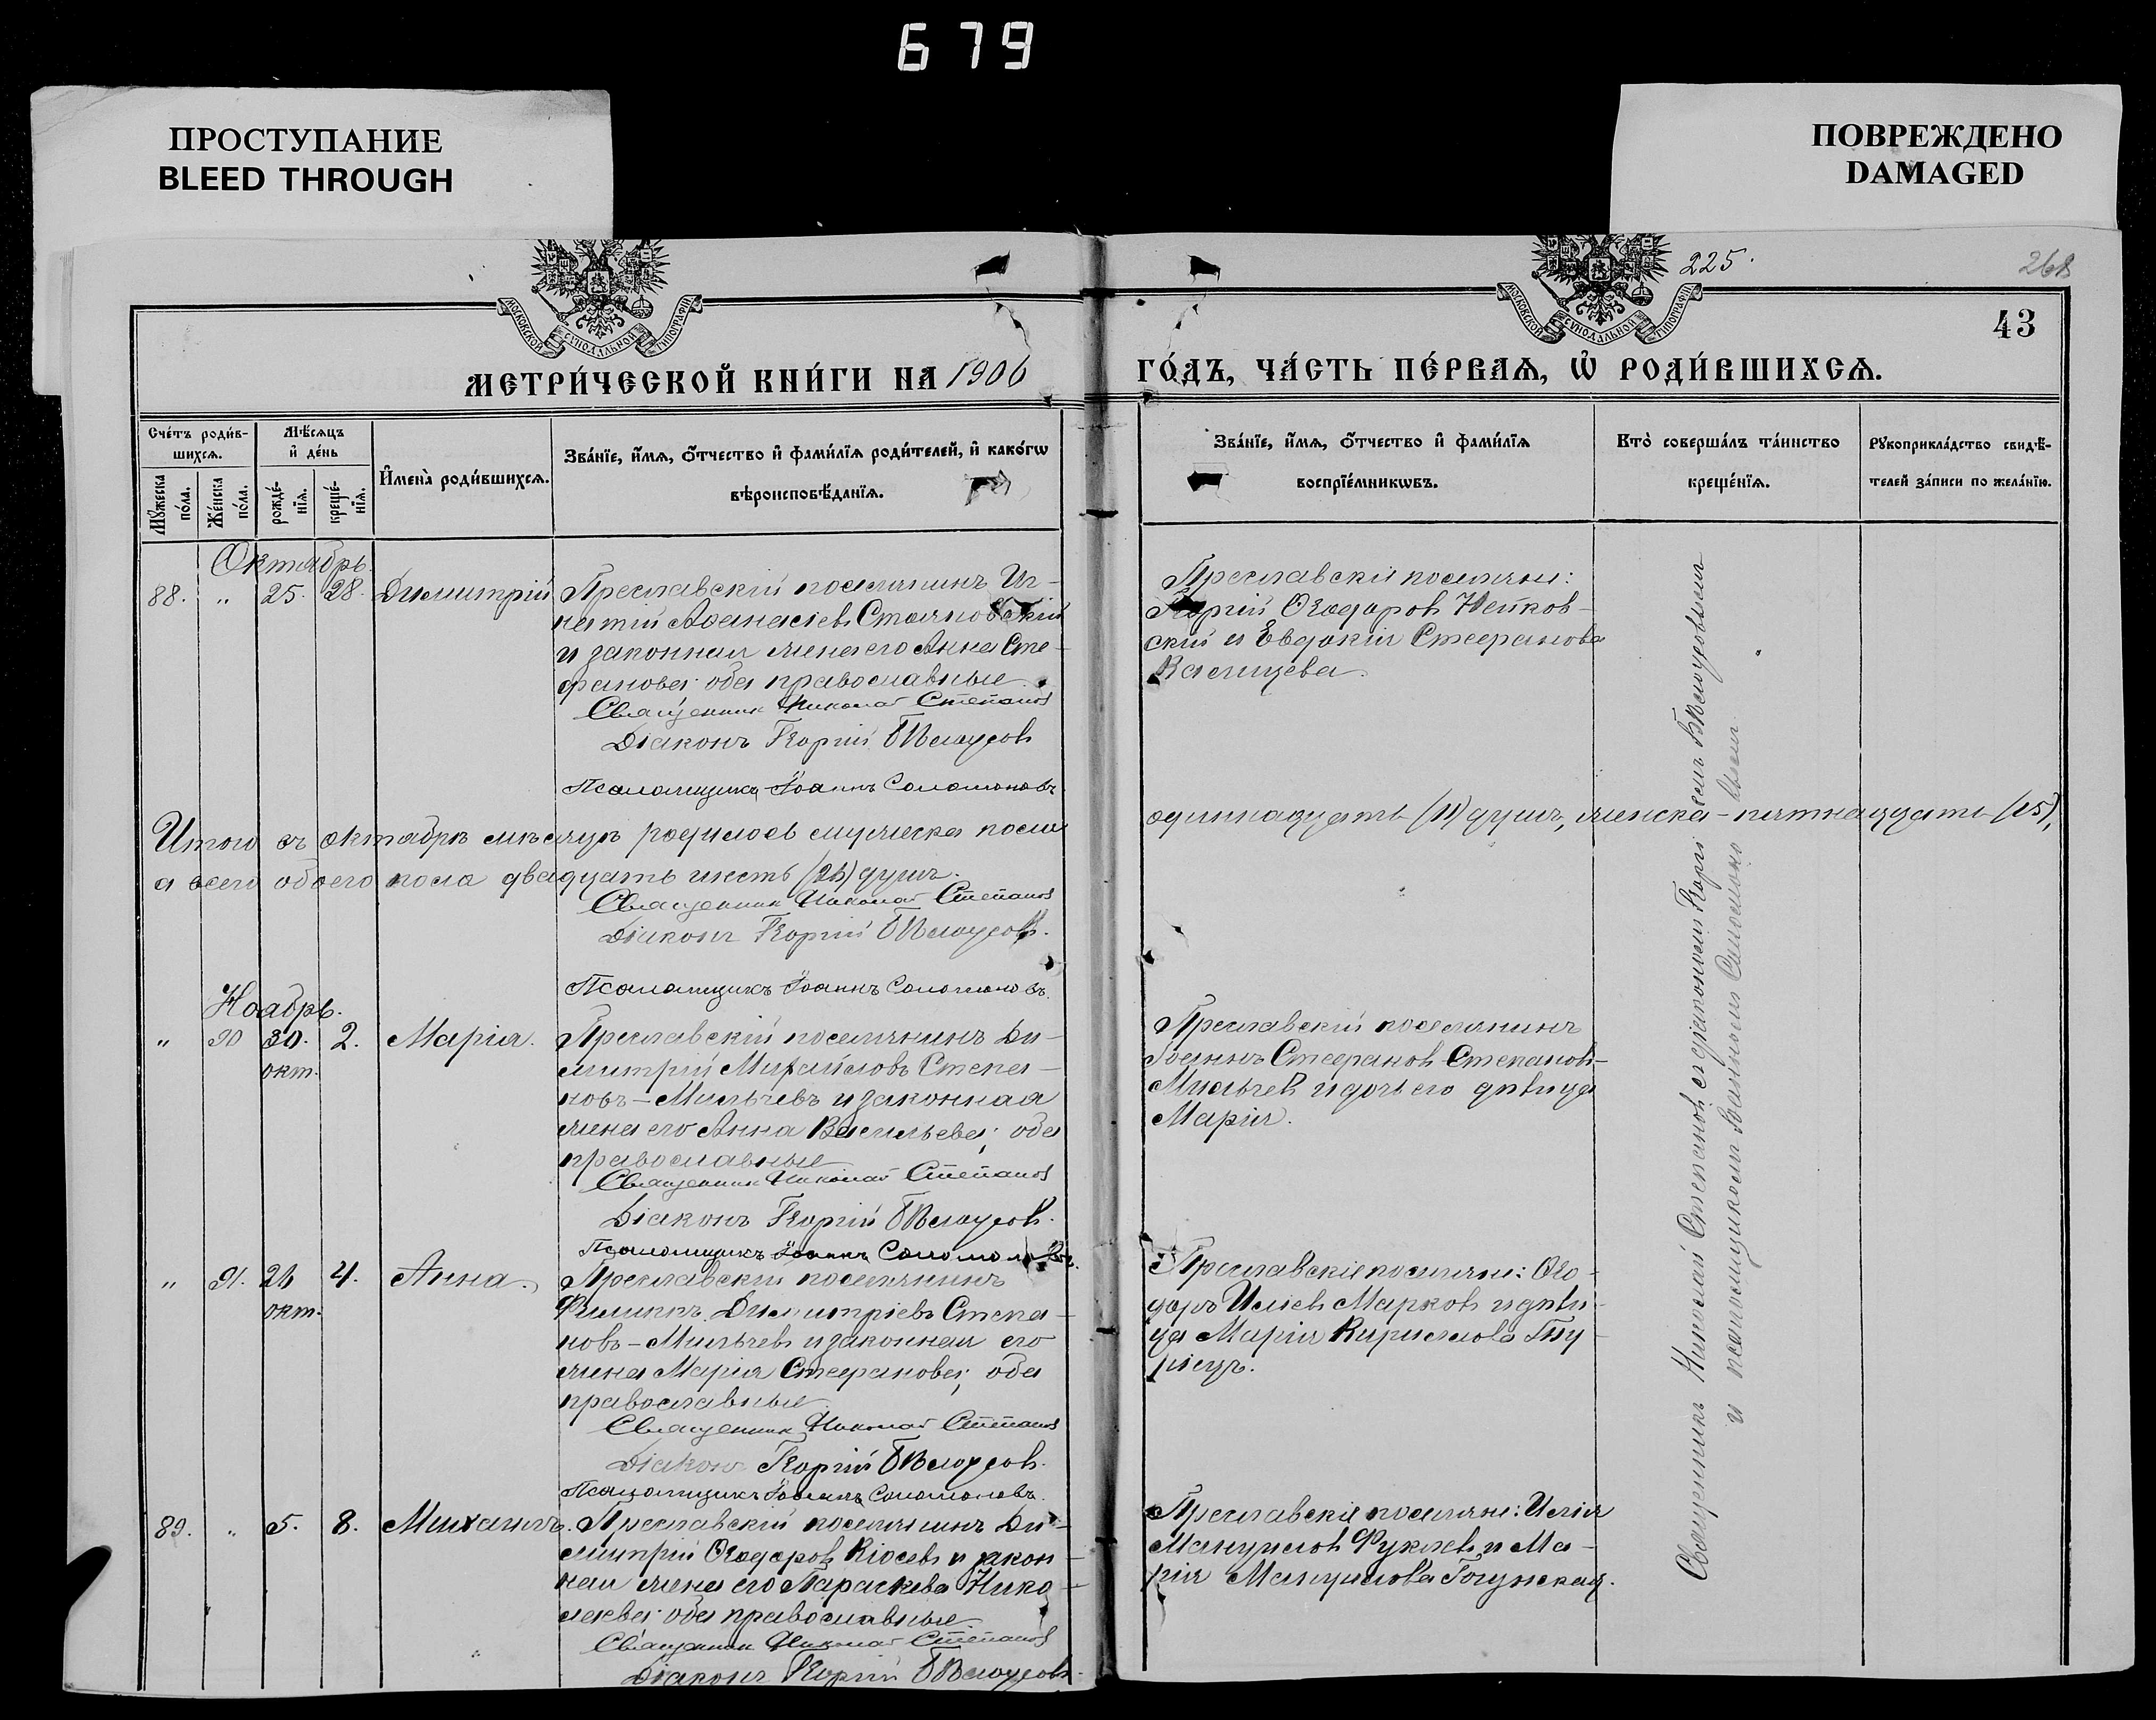 679
ПРОСТУПАНИЕ
BLEED THROUGH
ПОВРЕЖДЕНО
DAMAGED
МОСКОВСКОЙ СѴНОДАЛЬНОЙ ТИПОГРАФІИ
МОСКОВСКОЙ СѴНОДАЛЬНОЙ ТИПОГРАФІИ
225.
268
43
МЕТРИ́ЧЕСКОЙ КНИ́ГИ НА 1906
ГО́ДЪ, ЧА́СТЬ ПЕ́РВАѦ, Ѡ҆ РОДИ́ВШИХСѦ.
Сче́тъ роди́в-
шихсѧ.
Мѣ́сѧцъ
и҆ де́нь
Мꙋ́жеска
по́ла.
Же́нска
по́ла.
рожде́-
нїѧ.
креще́-
нїѧ.
И҆мена̀ роди́вшихсѧ.
Зва́нїе, и҆́мѧ, ѻ҆́тчество и҆ фами́лїѧ роди́телей, и҆ како́гѡ
вѣроисповѣ́данїѧ.
Зва́нїе, и҆́мѧ, ѻ҆́тчество и҆ фами́лїѧ
воспрїе́мникѡвъ.
Кто̀ соверша́лъ та́инство
креще́нїѧ.
Рꙋкоприкла́дство свидѣ́-
телей за́писи по жела́нїю.
Октябрь.
88. " 25. 28. Димитрій
Преславскій поселянинъ Иг-
натій Аѳанасіевъ Стояновскій
и законная жена его Анна Сте-
фанова; оба православные.
Священникъ Николай Степановъ
Діаконъ Георгій Бѣлоусовъ
Псаломщикъ Іоаннъ Соломоновъ
Преславскіе поселяне:
Георгій Ѳеодоровъ Нейков-
ский и Евдокія Стефанова
Казанцева.
Итого въ октябрѣ мѣсяцѣ родилось мужеска пола
одиннадцать (11) душъ, женска - пятнадцать (15),
а всего обоего пола двадцать шесть (26) душъ.
Священникъ Николай Степановъ
Діаконъ Георгій Бѣлоусовъ.
Псаломщикъ Іоаннъ Соломоновъ.
Ноябрь.
" 90 30. окт. 2. Марія.
Преславскій поселянинъ Ди-
митрій Михайловъ Степа-
новъ-Мильчевъ и законная
жена его Анна Васильева; оба
православные
Священникъ Николай Степановъ
Діаконъ Георгій Бѣлоусовъ.
Псаломщикъ Іоаннъ Соломоновъ.
Преславскій поселянинъ
Іоаннъ Стефановъ Степановъ-
Мильчевъ и дочь его дѣвица
Марія.
" 91. 26 окт. 4. Анна.
Преславскій поселянинъ
Филиппъ Димитріевъ Степа-
новъ-Мильчевъ и законная его
жена Марія Стефанова; оба
православные.
Священникъ Николай Степановъ
Діаконъ Георгій Бѣлоусовъ.
Псаломщикъ Іоаннъ Соломоновъ.
Преславскіе поселяне: Ѳео-
доръ Иліевъ Марковъ и дѣви-
ца Марія Кириллова
89. " 5. 8. Михаилъ.
Преславскій поселянинъ Ди-
митрій Ѳеодоровъ Кіосевъ и закон-
ная жена его Параскева Нико-
лаева; оба православные.
Священникъ Николай Степановъ
Діаконъ Георгій Бѣлоусовъ.
Преславскіе поселяне: Илія
Мануиловъ и Ма-
рія Мануилова
Священникъ Николай Степановъ съ діакономъ Георгіемъ Бѣлоусовымъ
и псаломщикомъ Іоанномъ